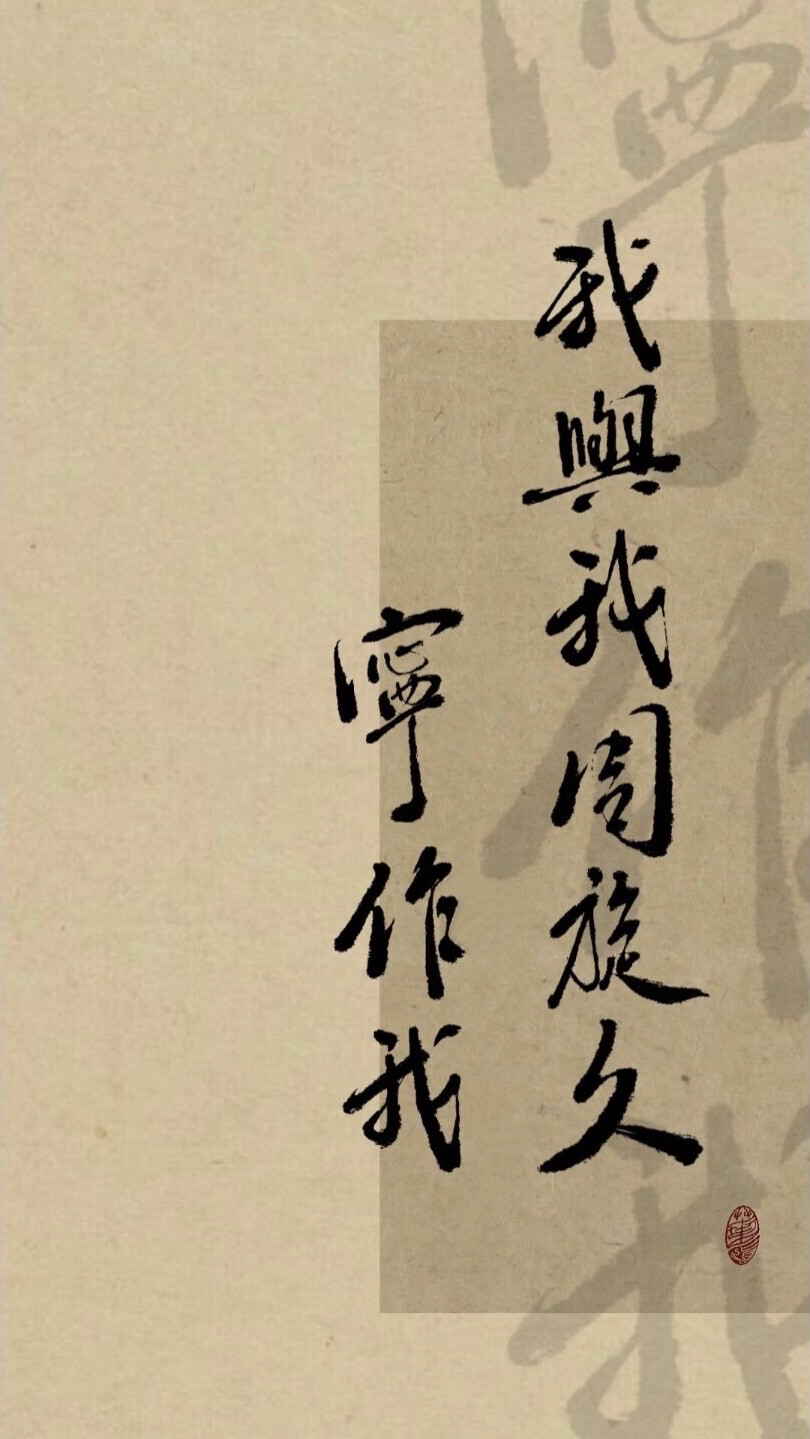 我與我周旋久
寧作我